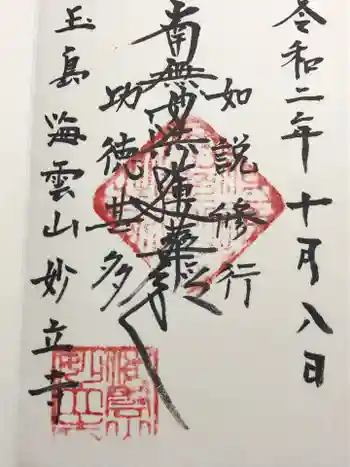 令和二年十月八日
如説修行
南無妙法蓮華経
功徳甚多
玉島海雲山妙立寺